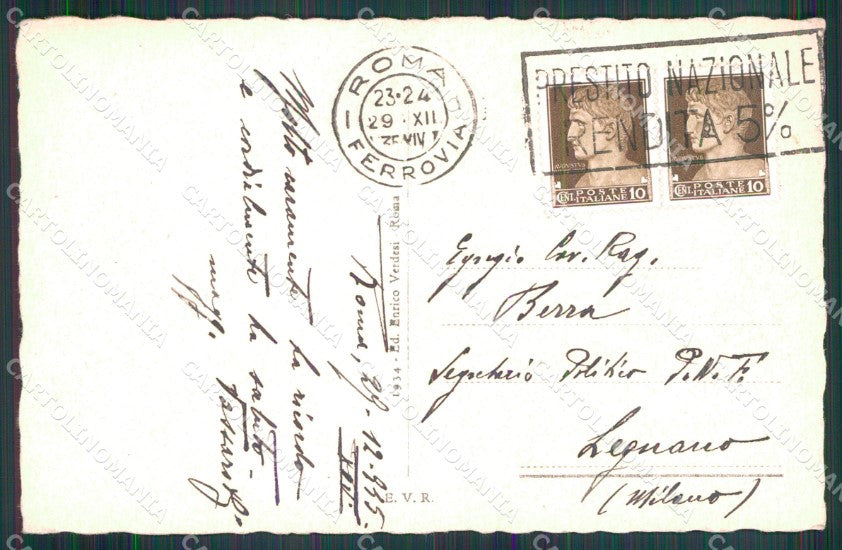 ROMA
FERROVIA
23·24
29·XII
PRESTITO NAZIONALE
RENDITA 5%
POSTE ITALIANE
CENT. 10
POSTE ITALIANE
CENT. 10
Roma, 29-12-935-
XIV.
Molto caramente La ricordo
e cordialmente La saluto -
magg.
Egregio Cav. Rag.
Berra
Segretario Politico P.N.F.
Legnano
(Milano)
1934 - Ed. Enrico Verdesi - Roma
E. V. R.
CARTOLINOMANIA